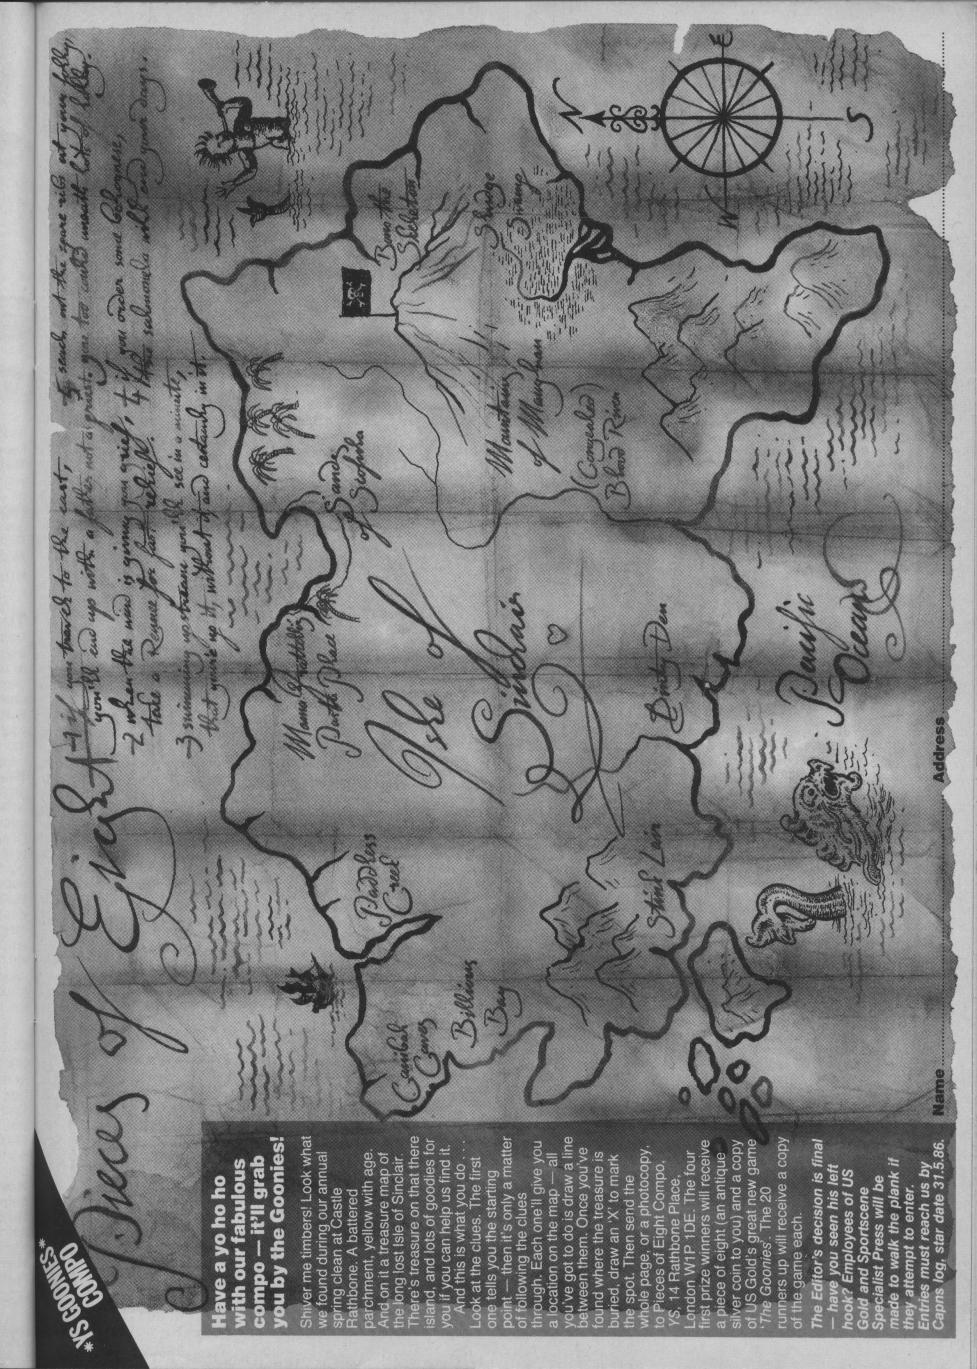 *YS GOONIES*
COMPO
Pieces of Eight
1 if you travel to the east,
you'll end up with a father not a priest.
2 when the wind is giving you grief,
take a Rennie for fast relief!
3 swimming upstream you'll see in a minute,
that you're up it, without it and certainly in it.
4 if you order some bolognese,
the salmonella will end your days.
5 search not the square rule out your folly,
you too could unearth lots of lolly!
Have a yo ho ho
with our fabulous
compo — it'll grab
you by the Goonies!
Shiver me timbers! Look what
we found during our annual
spring clean at Castle
Rathbone. A battered
parchment, yellow with age.
And on it a treasure map of
the long lost Isle of Sinclair.
There's treasure on that there
island, and lots of goodies for
you if you can help us find it.
And this is what you do . . .
Look at the clues. The first
one tells you the starting
point — then it's only a matter
of following the clues
through. Each one'll give you
a location on the map — all
you've got to do is draw a line
between them. Once you've
found where the treasure is
buried, draw an 'X' to mark
the spot. Then send the
whole page, or a photocopy,
to Pieces of Eight Compo,
YS, 14 Rathbone Place,
London W1P 1DE. The four
first prize winners will receive
a piece of eight (an antique
silver coin to you) and a copy
of US Gold's great new game
'The Goonies'. The 20
runners up will receive a copy
of the game each.
The Editor's decision is final
— have you seen his left
hook? Employees of US
Gold and Sportscene
Specialist Press will be
made to walk the plank if
they attempt to enter.
Entries must reach us by
Capns log, star date 31.5.86.
Canibal
Caves
Billiuns
Bay
Paddless
Creek
Stink Lair
Mama
Pasta Place
Isle of
Sinclair
Binty Den
Sands
of Scofusha
Bono the
Skeleton
Mountains
of Mayhan
(Congealed)
Blood River
Sludge
Swamp
Pacific
Oceans
N
E
S
W
Name
Address